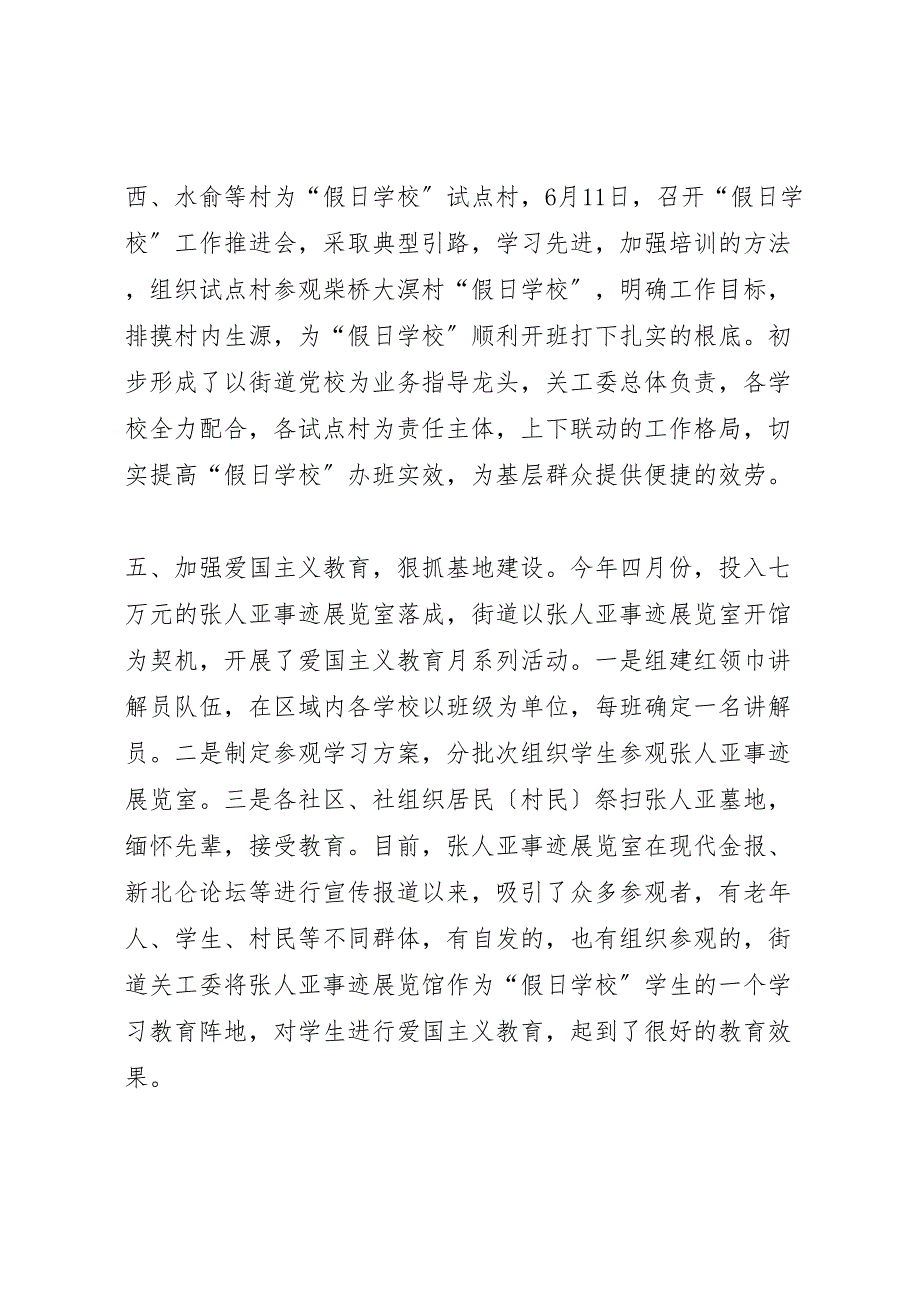 西、水俞等村为“假日学校〞试点村，6月11日，召开“假日学
校〞工作推进会，采取典型引路，学习先进，加强培训的方法
，组织试点村参观柴桥大溟村“假日学校〞，明确工作目标，
排摸村内生源，为“假日学校〞顺利开班打下扎实的根底。初
步形成了以街道党校为业务指导龙头，关工委总体负责，各学
校全力配合，各试点村为责任主体，上下联动的工作格局，切
实提高“假日学校〞办班实效，为基层群众提供便捷的效劳。
五、加强爱国主义教育，狠抓基地建设。今年四月份，投入七
万元的张人亚事迹展览室落成，街道以张人亚事迹展览室开馆
为契机，开展了爱国主义教育月系列活动。一是组建红领巾讲
解员队伍，在区域内各学校以班级为单位，每班确定一名讲解
员。二是制定参观学习方案，分批次组织学生参观张人亚事迹
展览室。三是各社区、社组织居民〔村民〕祭扫张人亚墓地，
缅怀先辈，接受教育。目前，张人亚事迹展览室在现代金报、
新北仑论坛等进行宣传报道以来，吸引了众多参观者，有老年
人、学生、村民等不同群体，有自发的，也有组织参观的，街
道关工委将张人亚事迹展览馆作为“假日学校〞学生的一个学
习教育阵地，对学生进行爱国主义教育，起到了很好的教育效
果。